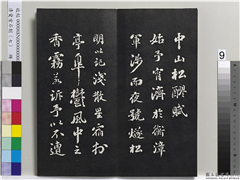 中山松醪賦
始予宵濟於衡漳
軍涉而夜號燧松
明以記淺散星宿於
亭皋鬱風中之
香霧若訴予以不遭
9